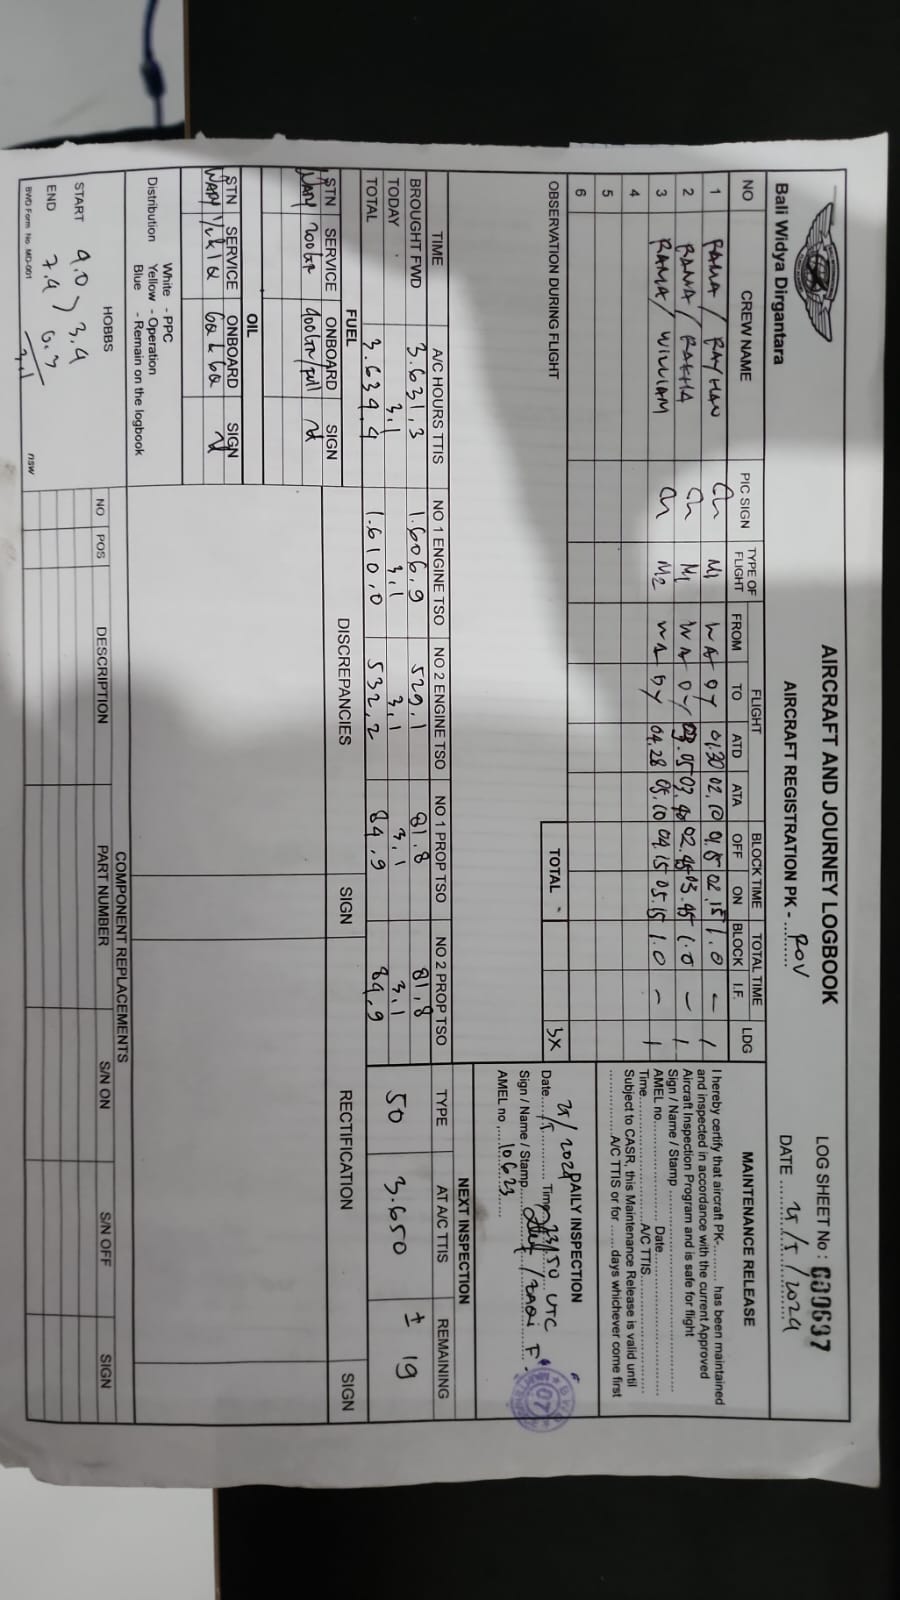 Bali Widya Dirgantara
AIRCRAFT AND JOURNEY LOGBOOK
AIRCRAFT REGISTRATION PK - ROV
LOG SHEET No : 000637
DATE 25/5/2024
NO CREW NAME PIC SIGN TYPE OF FLIGHT FLIGHT FROM TO ATD ATA BLOCK TIME OFF ON TOTAL TIME BLOCK I.F. LDG
1 RAMA / RAYHAN M1 WADY 01.30 02.10 02.15 1.0 - 1
2 RAMA / RAKHA M1 WADY 03.05 03.40 02.45 03.45 1.0 - 1
3 RAMA / WILLIAM M2 WADY 04.28 05.10 04.15 05.15 1.0 - 1
4
5
6
OBSERVATION DURING FLIGHT
TOTAL 3x
MAINTENANCE RELEASE
I hereby certify that aircraft PK.......... has been maintained
and inspected in accordance with the current Approved
Aircraft Inspection Program and is safe for flight
Sign / Name / Stamp
AMEL no. Date
Time A/C TTIS
Subject to CASR, this Maintenance Release is valid until
A/C TTIS or for ...... days whichever come first
DAILY INSPECTION
Date 25/5 2024 Time 23:50 UTC
Sign / Name / Stamp
AMEL no 10623
TIME A/C HOURS TTIS NO 1 ENGINE TSO NO 2 ENGINE TSO NO 1 PROP TSO NO 2 PROP TSO
BROUGHT FWD 3.631,3 1.606,9 529,1 81,8 81,8
TODAY 3,1 3,1 3,1 3,1 3,1
TOTAL 3.634,4 1.610,0 532,2 84,9 84,9
NEXT INSPECTION
TYPE AT A/C TTIS REMAINING
50 3.650 ± 19
FUEL
STN SERVICE ONBOARD SIGN
WADY 200Ltr 400Ltr/full
OIL
STN SERVICE ONBOARD SIGN
WADY 6Q & 6Q
DISCREPANCIES SIGN RECTIFICATION SIGN
Distribution White - PPC
Yellow - Operation
Blue - Remain on the logbook
COMPONENT REPLACEMENTS
NO POS DESCRIPTION PART NUMBER S/N ON S/N OFF SIGN
HOBBS
START 4.0 3.4
END 7.4 0.3
3,1
BWD Form No. MD-001
nsw